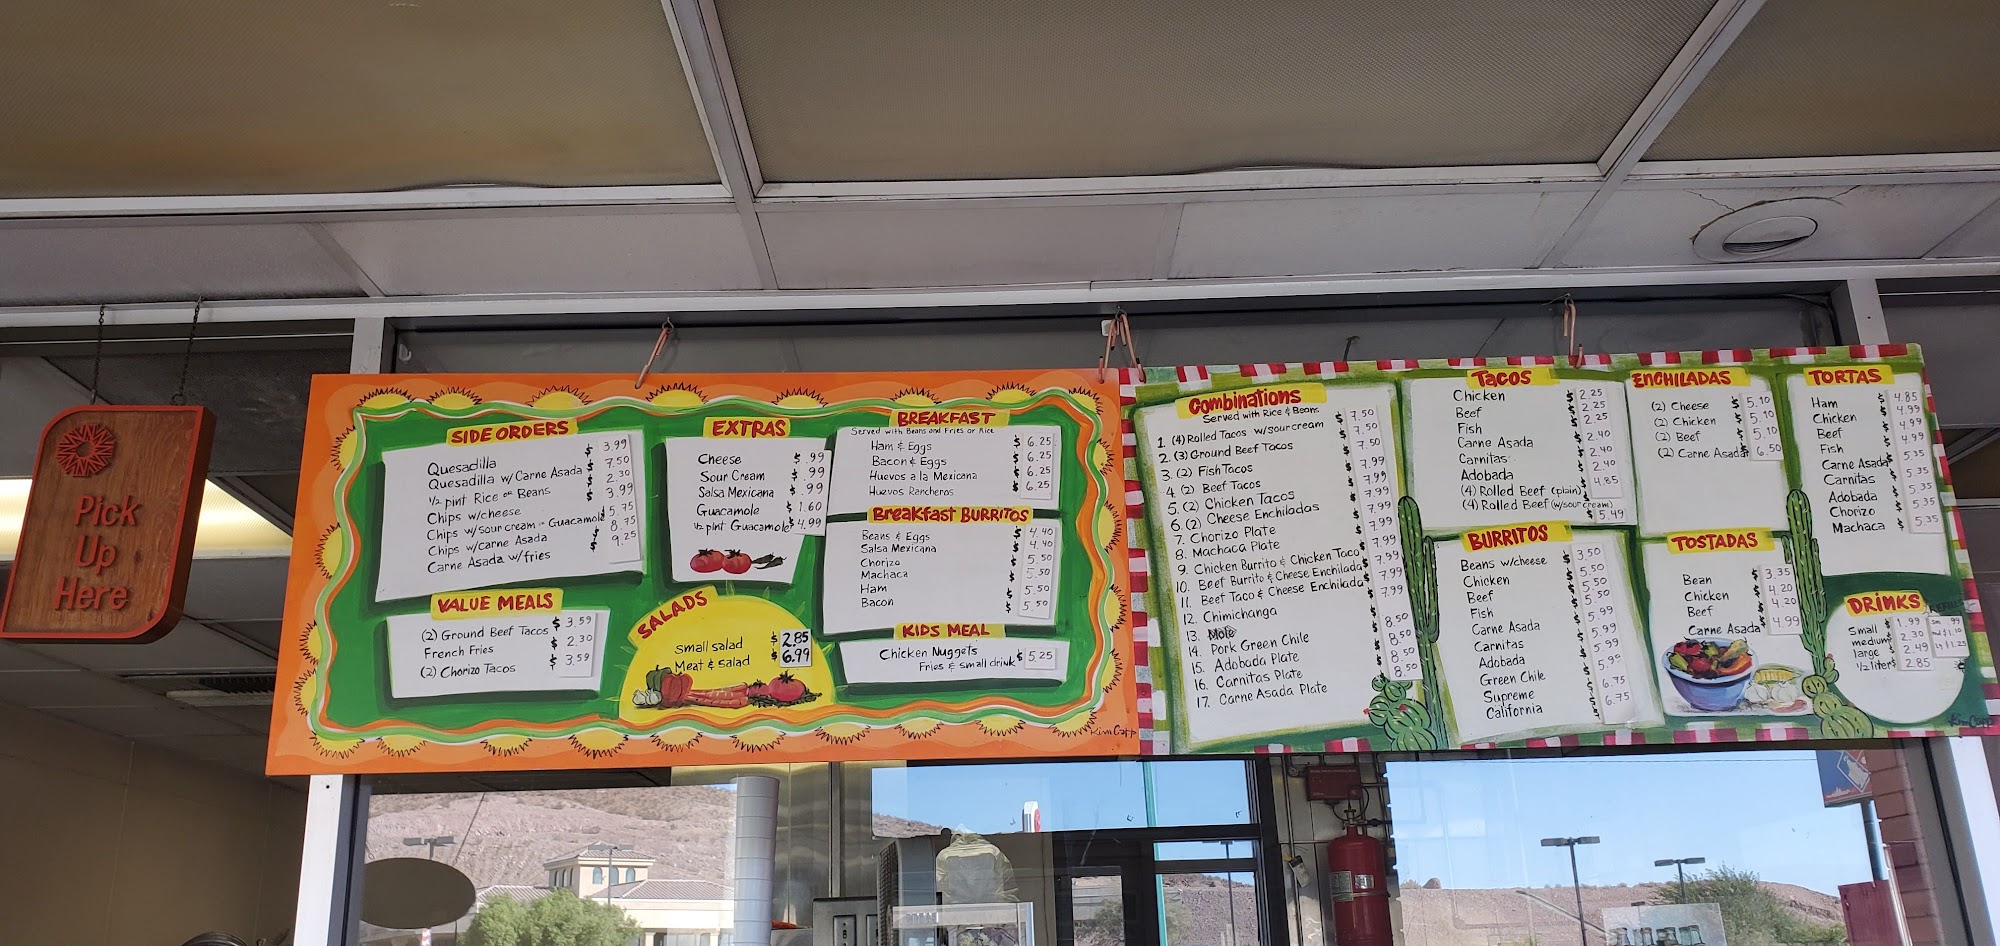 Pick
Up
Here
SIDE ORDERS
Quesadilla $ 3.99
Quesadilla w/Carne Asada $ 7.50
½ pint Rice or Beans $ 2.30
Chips w/cheese $ 3.99
Chips w/sour cream or Guacamole $ 5.75
Chips w/carne Asada $ 8.75
Carne Asada w/fries $ 9.25
VALUE MEALS
(2) Ground Beef Tacos $ 3.59
French Fries $ 2.30
(2) Chorizo Tacos $ 3.59
EXTRAS
Cheese $ .99
Sour Cream $ .99
Salsa Mexicana $ .99
Guacamole $ 1.60
½ pint Guacamole $ 4.99
SALADS
Small salad $ 2.85
Meat & Salad $ 6.99
BREAKFAST
Served with Beans and Fries or Rice
Ham & Eggs $ 6.25
Bacon & Eggs $ 6.25
Huevos a la Mexicana $ 6.25
Huevos Rancheros $ 6.25
Breakfast BURRITOS
Beans & Eggs $ 4.40
Salsa Mexicana $ 4.40
Chorizo $ 5.50
Machaca $ 5.50
Ham $ 5.50
Bacon $ 5.50
KIDS MEAL
Chicken Nuggets
Fries & small drink $ 5.25
Kim Capp
Combinations
Served with Rice & Beans
1. (4) Rolled Tacos w/sour cream $ 7.50
2. (3) Ground Beef Tacos $ 7.50
3. (2) Fish Tacos $ 7.50
4. (2) Beef Tacos $ 7.99
5. (2) Chicken Tacos $ 7.99
6. (2) Cheese Enchiladas $ 7.99
7. Chorizo Plate $ 7.99
8. Machaca Plate $ 7.99
9. Chicken Burrito & Chicken Taco $ 7.99
10. Beef Burrito & Cheese Enchilada $ 7.99
11. Beef Taco & Cheese Enchilada $ 7.99
12. Chimichanga $ 7.99
13. Mole
14. Pork Green Chile $ 8.50
15. Adobada Plate $ 8.50
16. Carnitas Plate $ 8.50
17. Carne Asada Plate $ 8.50
TACOS
Chicken $ 2.25
Beef $ 2.25
Fish $ 2.25
Carne Asada $ 2.40
Carnitas $ 2.40
Adobada $ 2.40
(4) Rolled Beef (plain) $ 4.85
(4) Rolled Beef (w/sour cream) $ 5.49
BURRITOS
Beans w/cheese $ 3.50
Chicken $ 5.50
Beef $ 5.50
Fish $ 5.50
Carne Asada $ 5.99
Carnitas $ 5.99
Adobada $ 5.99
Green Chile $ 5.99
Supreme $ 6.75
California $ 6.75
ENCHILADAS
(2) Cheese $ 5.10
(2) Chicken $ 5.10
(2) Beef $ 5.10
(2) Carne Asada $ 6.50
TOSTADAS
Bean $ 3.35
Chicken $ 4.20
Beef $ 4.20
Carne Asada $ 4.99
TORTAS
Ham $ 4.85
Chicken $ 4.99
Beef $ 4.99
Fish $ 4.99
Carne Asada $ 5.35
Carnitas $ 5.35
Adobada $ 5.35
Chorizo $ 5.35
Machaca $ 5.35
DRINKS
Small $ 1.99
medium $ 2.30
large $ 2.49
½ liter $ 2.85
Kim Capp